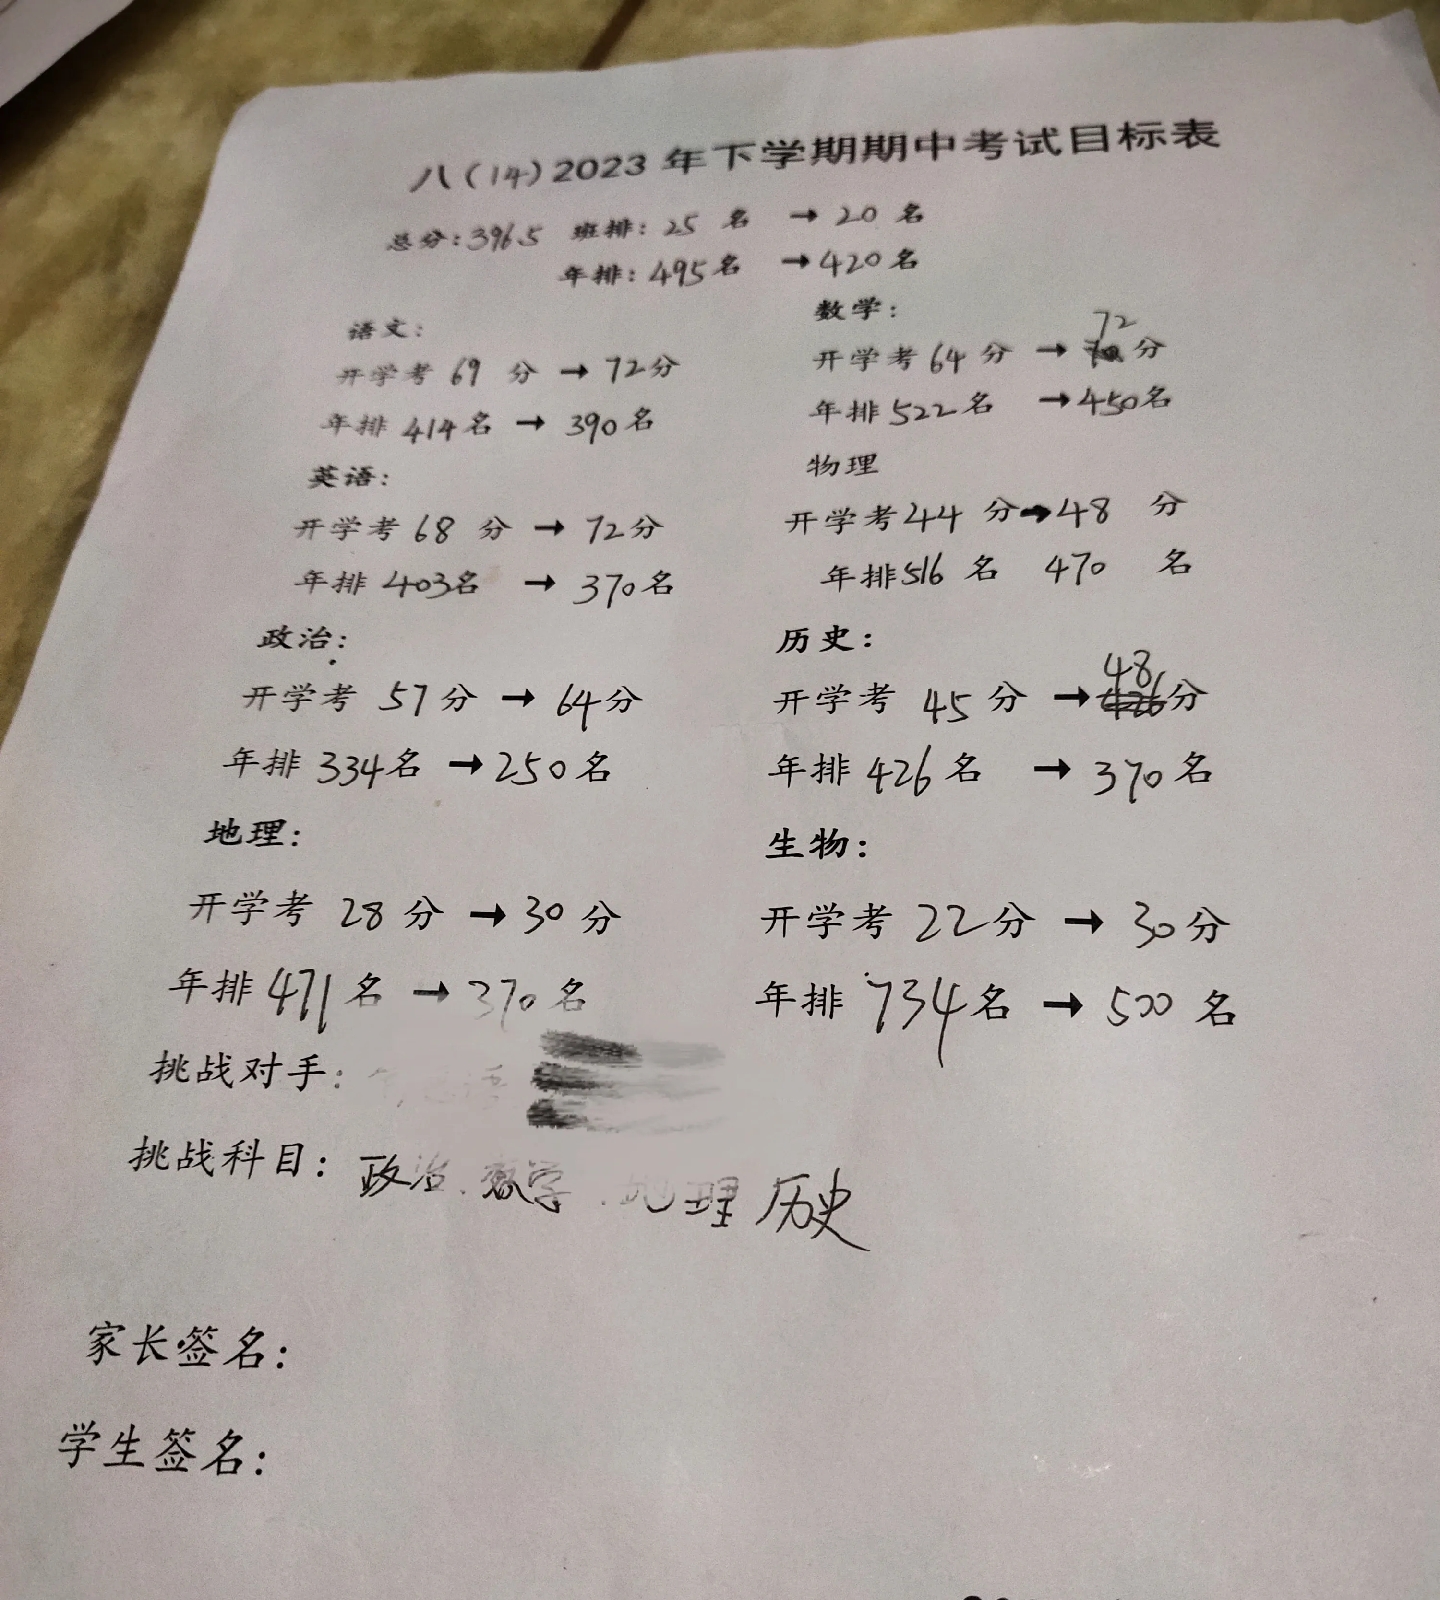 八(14)2023年下学期期中考试目标表
总分:396.5 班排:25名 → 20名
年排:495名 → 420名
语文:
开学考 69 分 → 72分
年排 414名 → 390名
数学:
72
开学考 64 分 → 分
年排 522名 → 450名
英语:
开学考 68 分 → 72分
年排 403名 → 370名
物理
开学考 44 分→48 分
年排516 名 470 名
政治:
开学考 57分 → 64分
年排 334名 → 250名
历史:
48
开学考 45 分 → 426分
年排 426 名 → 370 名
地理:
开学考 28 分 → 30 分
年排 471 名 → 370 名
生物:
开学考 22分 → 30分
年排 734名 → 500 名
挑战对手:
挑战科目: 政治、数学、地理 历史
家长签名:
学生签名: